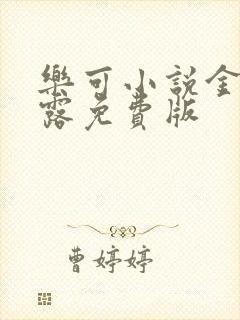 樂可小說金
露免費版
曹婷婷